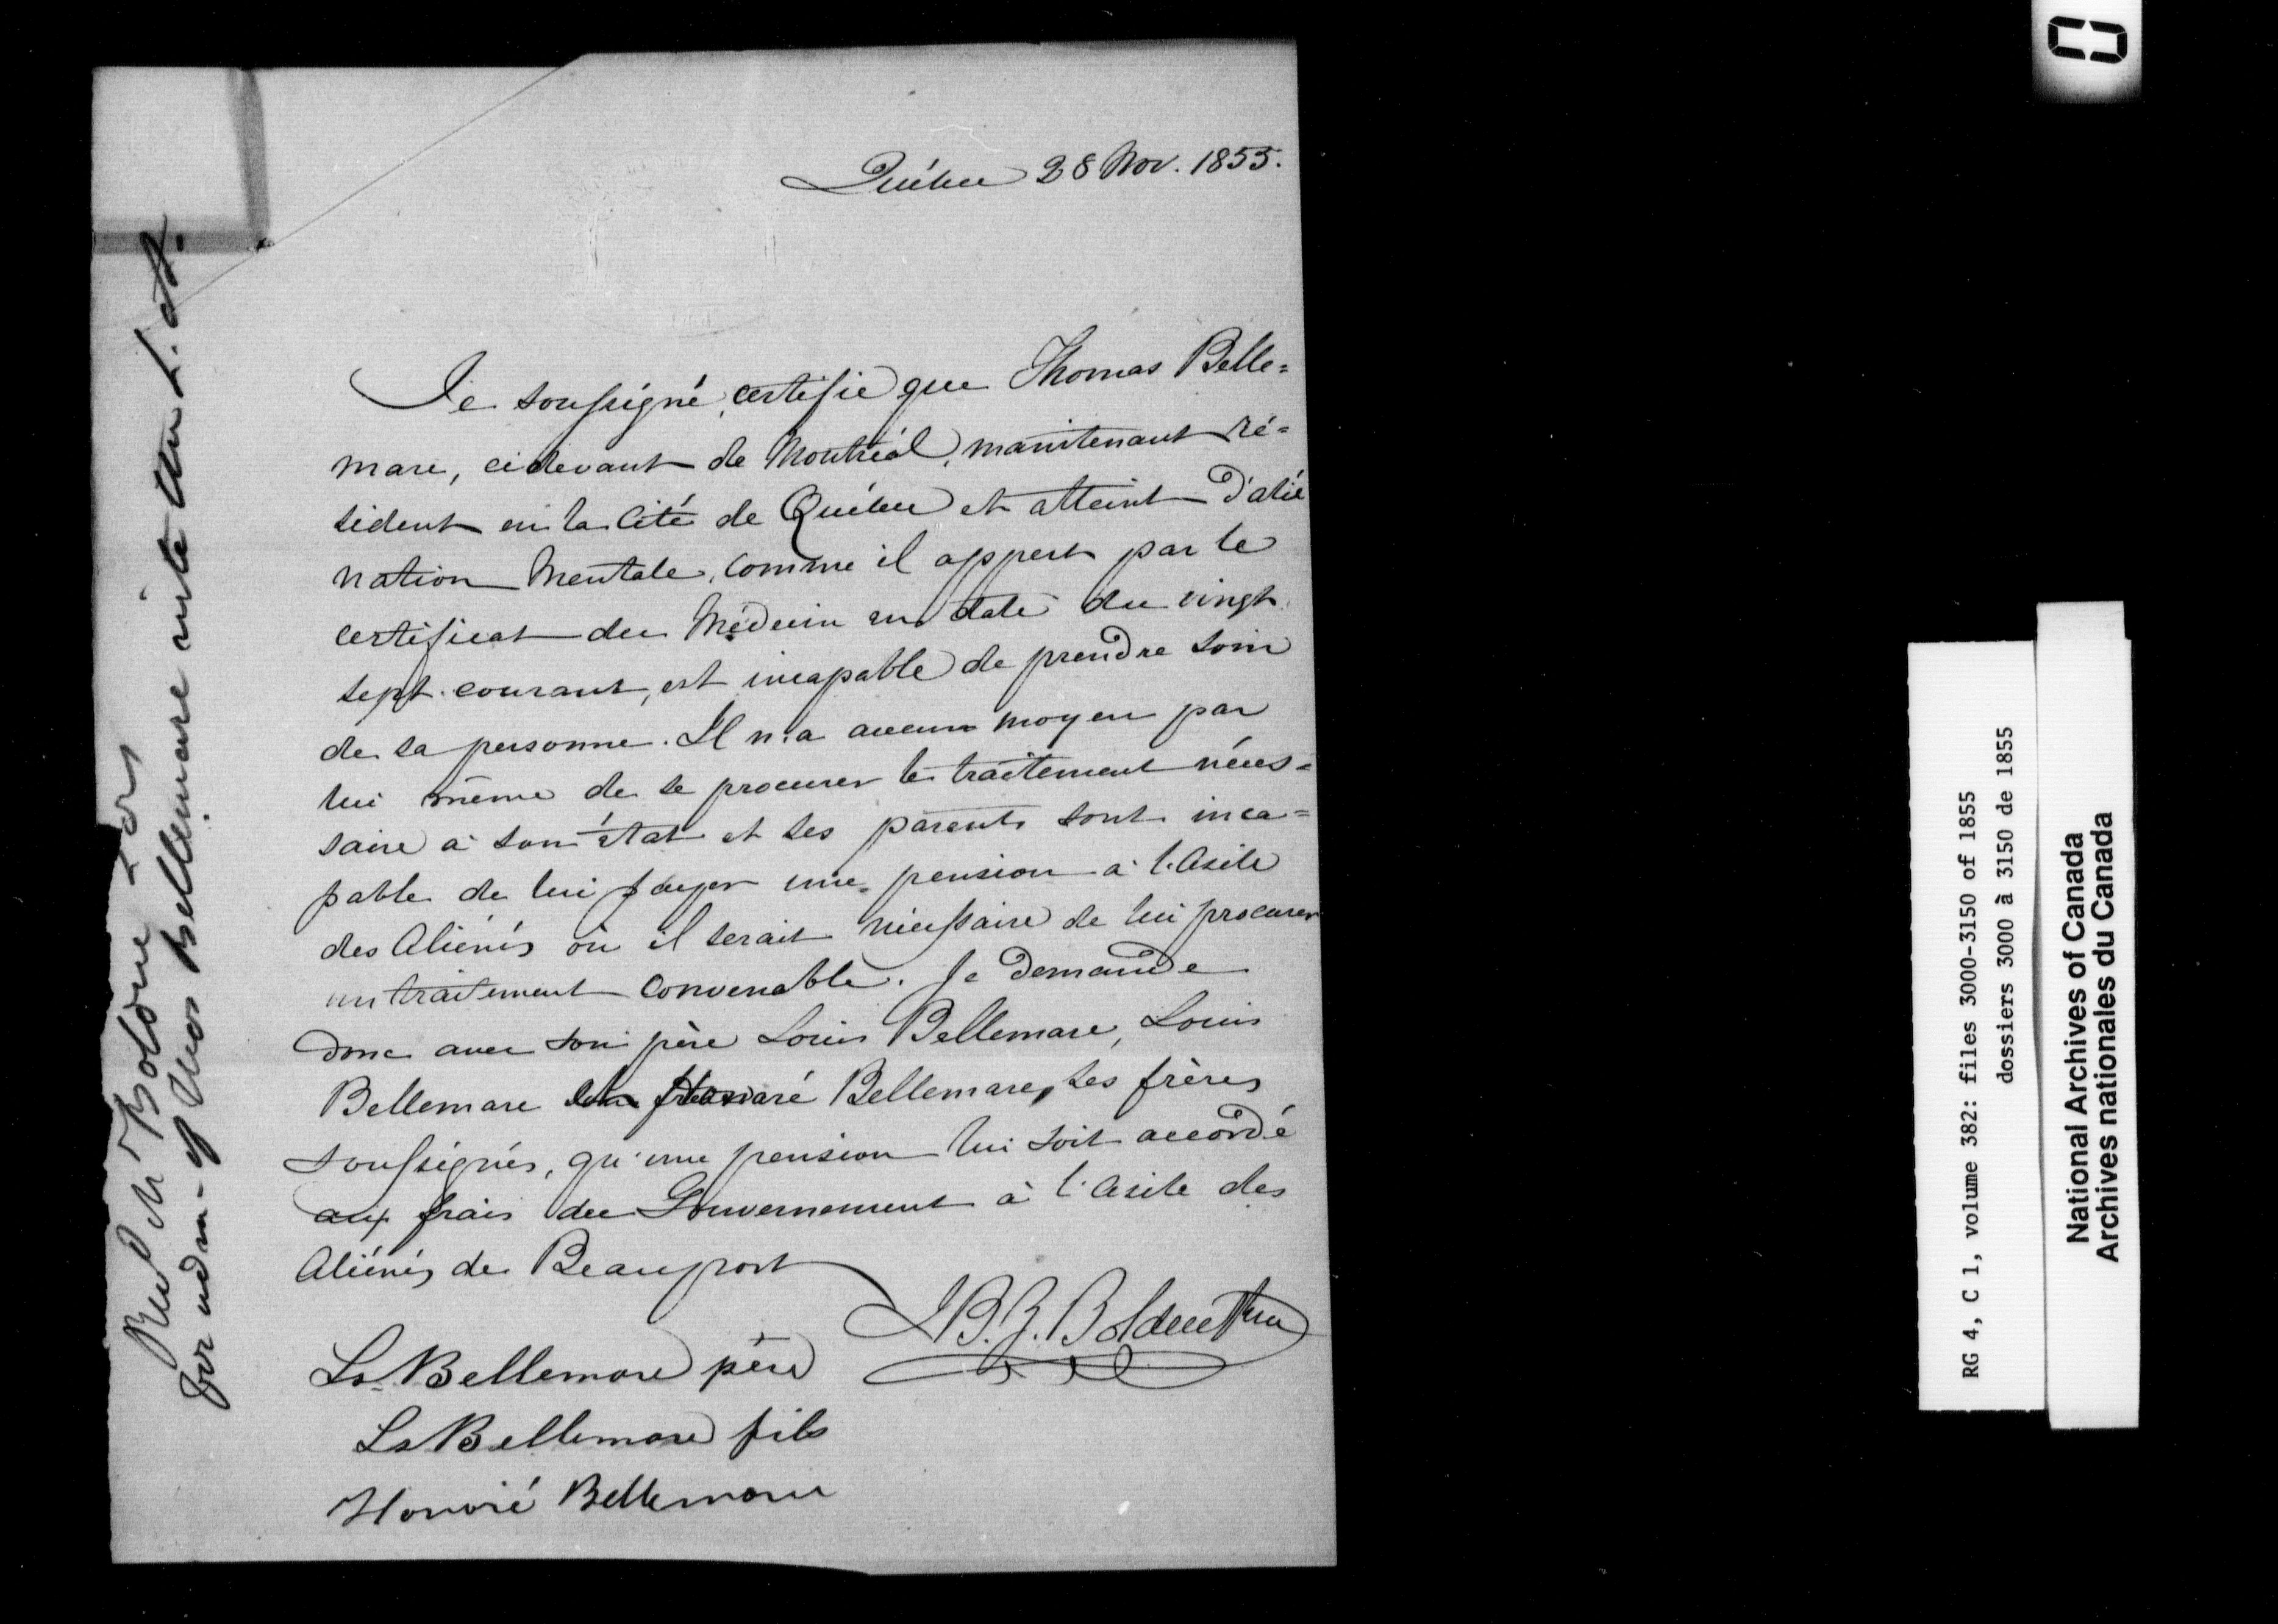 Québec 28 Nov. 1855.
Je soussigné, certifie que Thomas Belle=
mare, ci devant de Montréal, maintenant ré=
sident en la Cité de Québec et atteint d'alié
nation Mentale, comme il appert par le
certificat du Médecin en date du vingt
sept courant, est incapable de prendre soin
de sa personne. Il n'a aucun moyen par
lui même de se procurer le traitement néces=
saire à son état et ses parents sont inca=
pable de lui payer une pension à l'Asile
des Aliénés où il serait nécessaire de lui procurer
un traitement convenable. Je demande
donc avec son père Louis Bellemare, Louis
Bellemare Honoré Bellemare, ses frères
soussignés, qu'une pension lui soit accordé
aux frais du Gouvernement à l'Asile des
Aliénés de Beauport
J B. Z. Bolduc Ptre
Ls Bellemare père
Ls Bellemare fils
Honoré Bellemare
Rev. M Bolduc &ors
for adm- of Thos Bellemare into the L. A.
RG 4, C 1, volume 382: files 3000-3150 of 1855
dossiers 3000 à 3150 de 1855
National Archives of Canada
Archives nationales du Canada